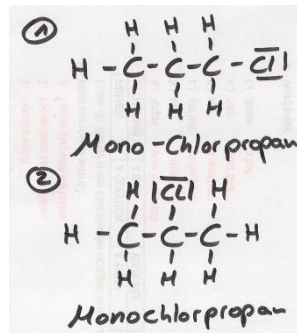 1
H H H
H - C - C - C - Cl
H H H
Mono-Chlorpropan
2
H Cl H
H - C - C - C - H
H H H
Monochlorpropan